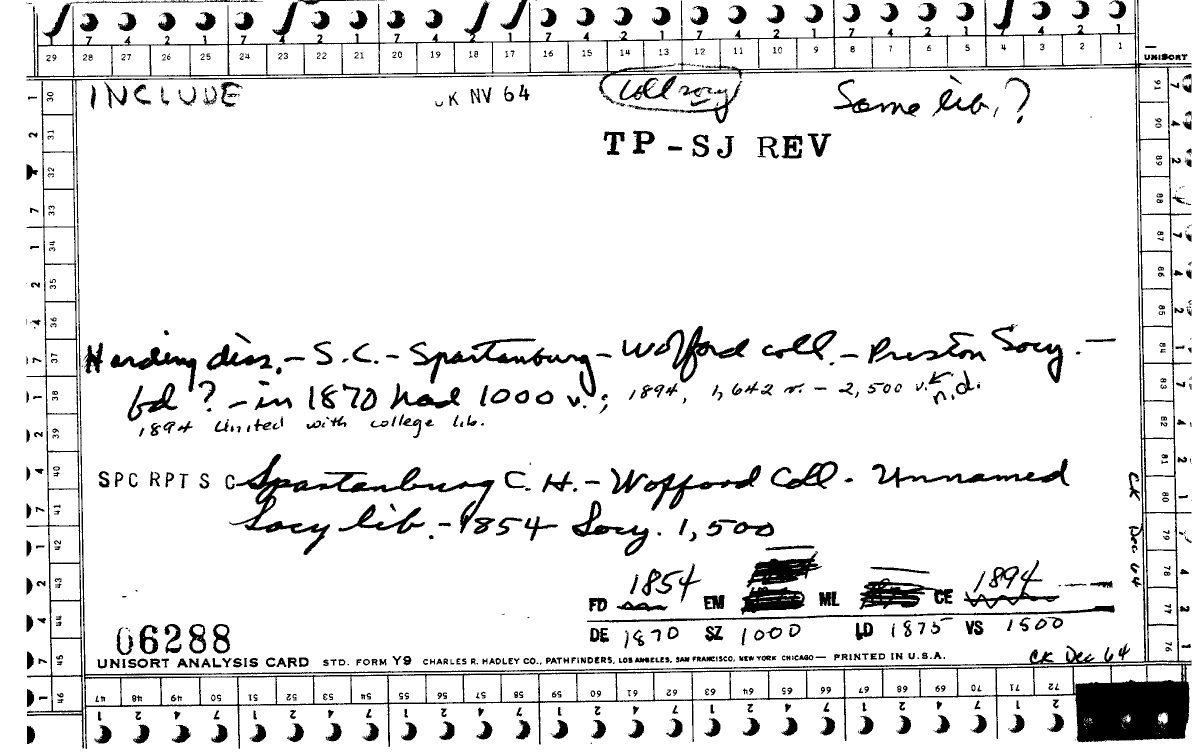 7 4 2 1 7 4 2 1 7 4 2 1 7 4 2 1 7 4 2 1 7 4 2 1 7 4 2 1
29 28 27 26 25 24 23 22 21 20 19 18 17 16 15 14 13 12 11 10 9 8 7 6 5 4 3 2 1 UNISORT
INCLUDE CK NV 64 Coll socy Same lib.?
TP-SJ REV
Harding diss. - S.C. - Spartanburg - Wofford coll. - Preston Socy. -
fd ? - in 1870 had 1000 v.; 1894, 1,642 v. - 2,500 v. n.d.
1894 United with college lib.
SPC RPT S C Spartanburg C. H. - Wofford Coll. Unnamed
Socy lib. - 1854 Socy. 1,500
FD 1854 EM ML CE 1894
DE 1870 SZ 1000 LD 1875 VS 1500
06288
UNISORT ANALYSIS CARD STD. FORM Y9 CHARLES R. HADLEY CO., PATHFINDERS, LOS ANGELES, SAN FRANCISCO, NEW YORK CHICAGO — PRINTED IN U.S.A.
CK Dec 64
CK Dec 64
30 31 32 33 34 35 36 37 38 39 40 41 42 43 44 45 46
91 90 89 88 87 86 85 84 83 82 81 80 79 78 77 76
47 48 49 50 51 52 53 54 55 56 57 58 59 60 61 62 63 64 65 66 67 68 69 70 71 72
1 2 4 7 1 2 4 7 1 2 4 7 1 2 4 7 1 2 4 7 1 2 4 7 1 2